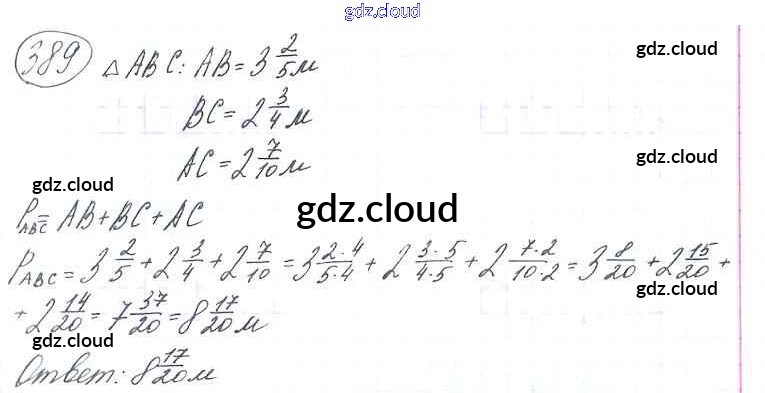 gdz.cloud
389 △ ABC: AB = 3 2/5 м gdz.cloud
BC = 2 3/4 м
AC = 2 7/10 м gdz.cloud
gdz.cloud
P_ABC = AB + BC + AC gdz.cloud
P_ABC = 3 2/5 + 2 3/4 + 2 7/10 = 3 2·4/5·4 + 2 3·5/4·5 + 2 7·2/10·2 = 3 8/20 + 2 15/20 +
gdz.cloud
+ 2 14/20 = 7 37/20 = 8 17/20 м
gdz.cloud
Ответ: 8 17/20 м
gdz.cloud
gdz.cloud